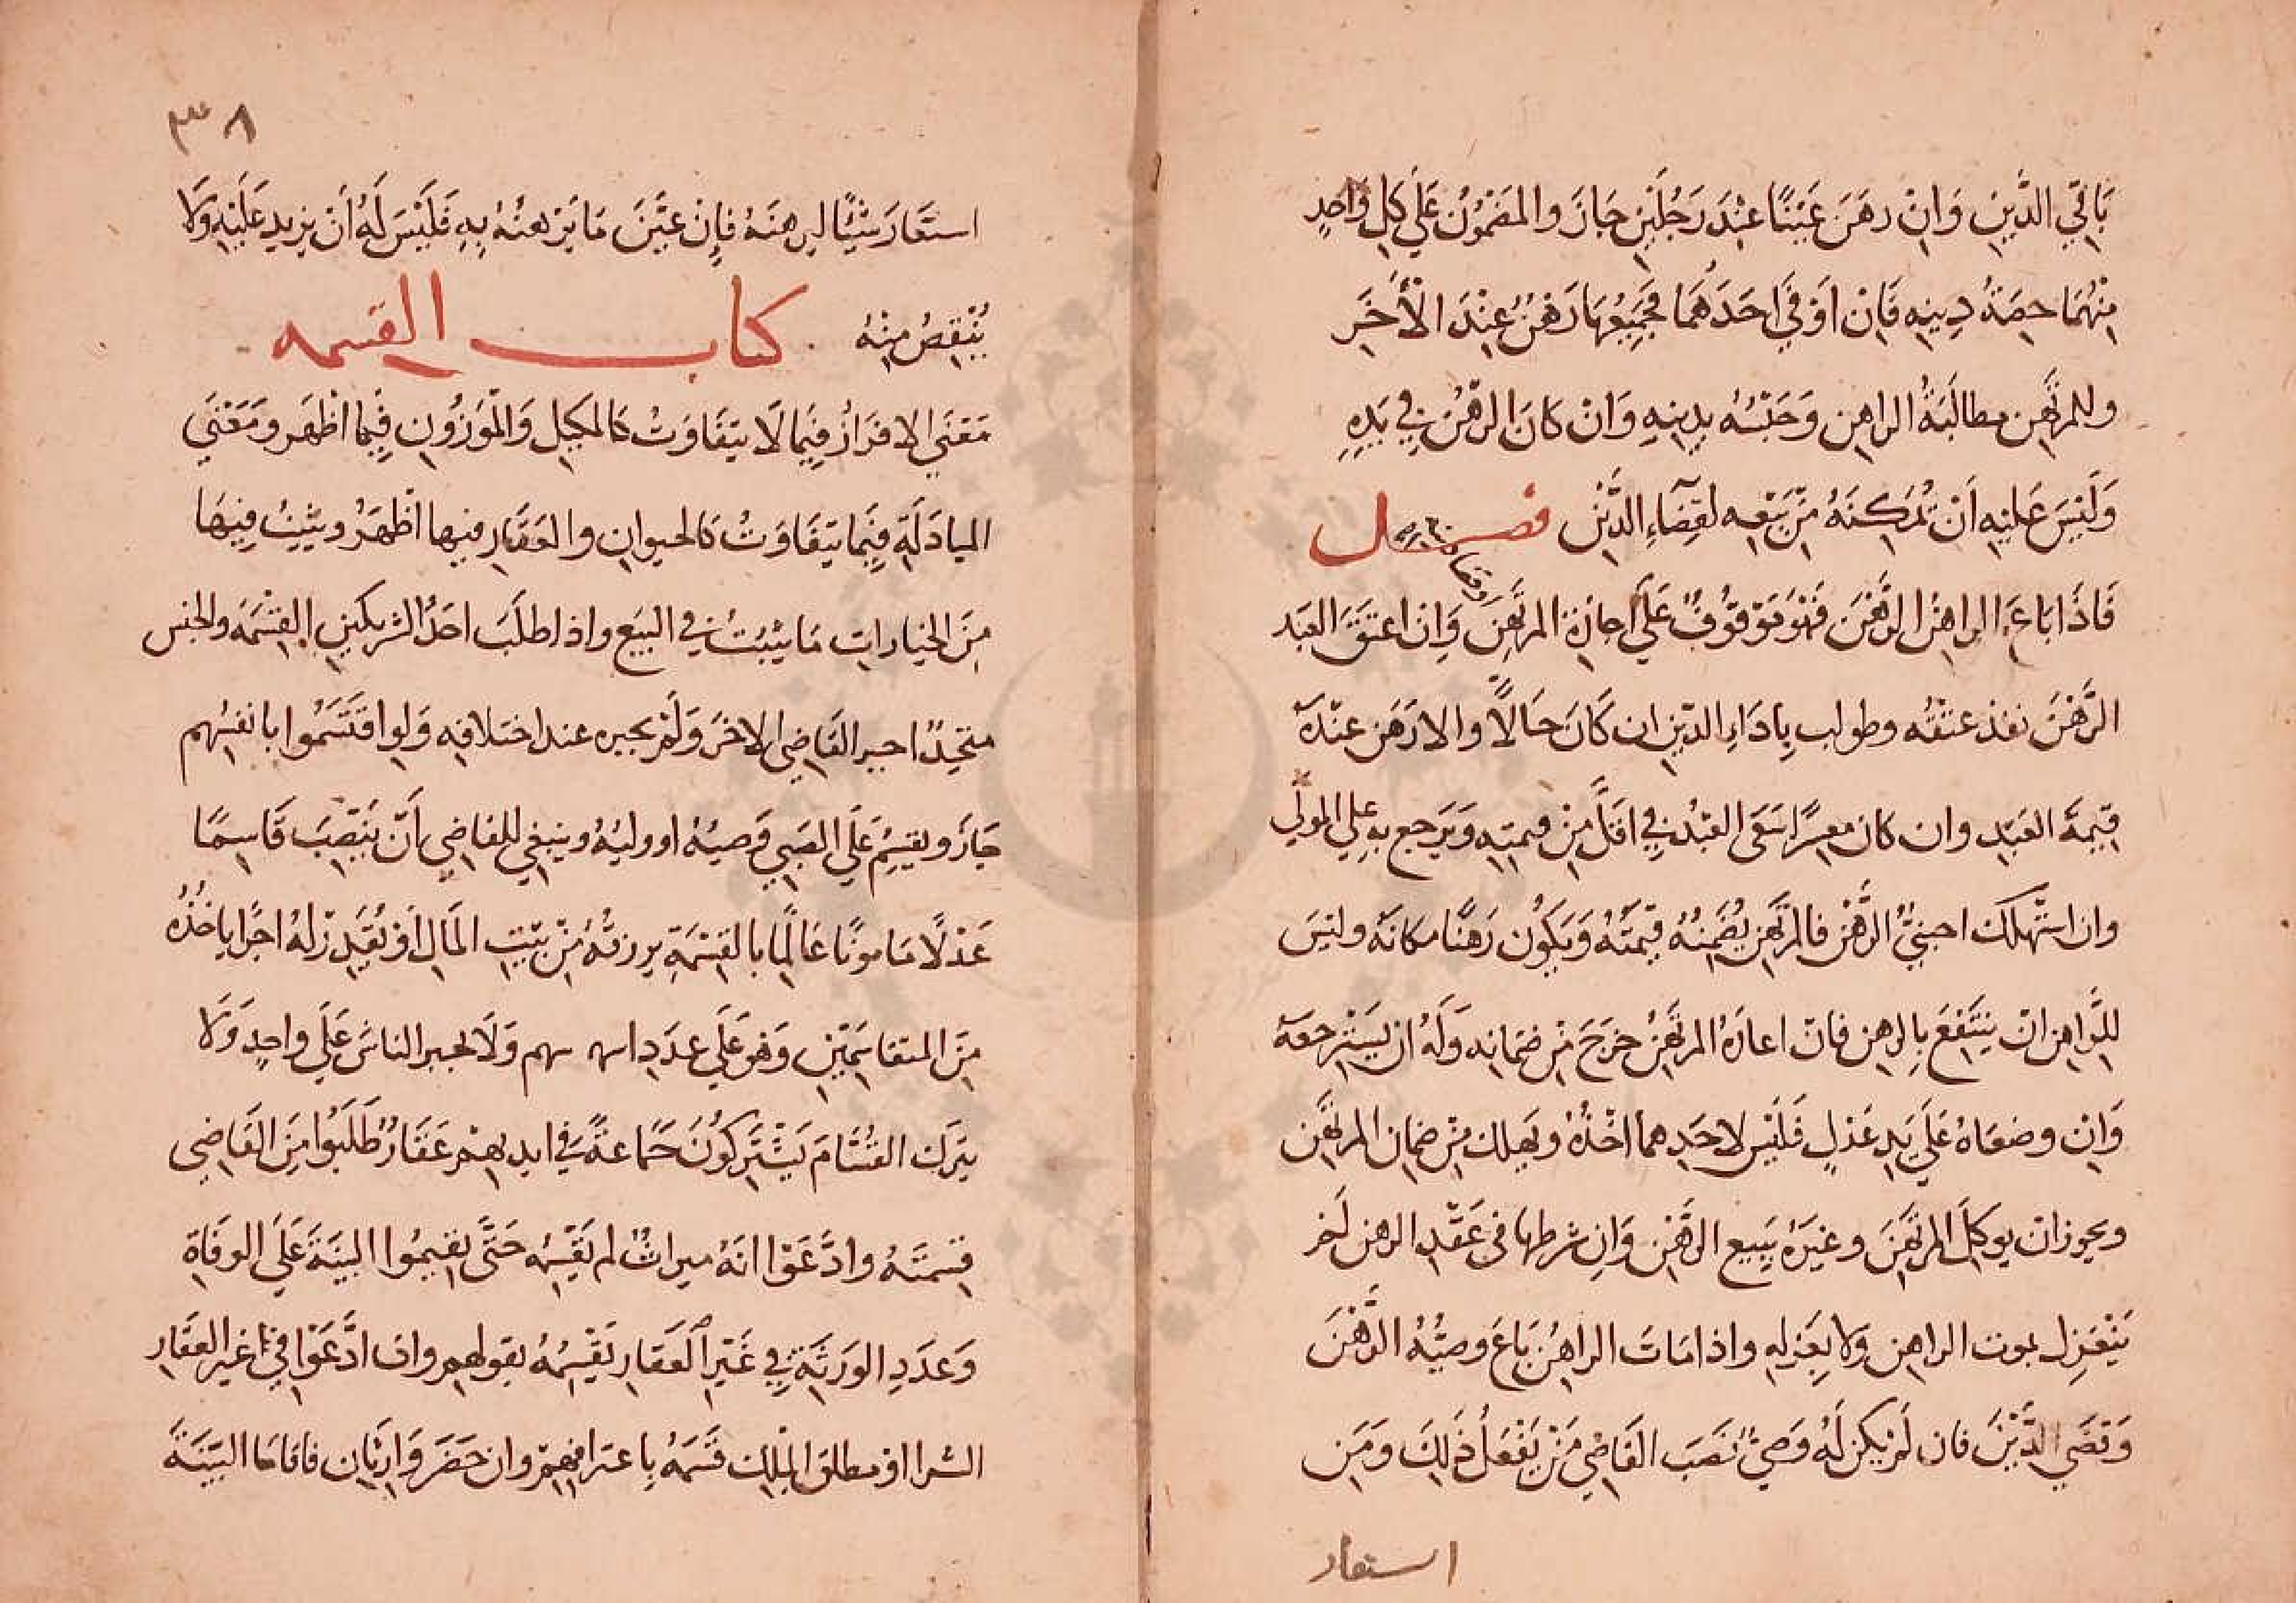 بَاقِي الدَّيْنِ وَانْ رهَنَ عَيْنًا عِنْدَ رَجُلَيْنِ جَازَ والمَضْمُوْنُ عَلَي كلِ وَاحِدٍ
مِنْهُمَا حِصَةُ دِينِهِ فَاِنْ اَوْفَي اَحَدَهُمَا فجَمِيْعُهَا رَهْنٌ عِنْدَ الْأَخَرِ
وللمرتَهِن مطالَبَةُ الراهِنِ وَحَبْسُه بدينِهِ وَانْ كانَ الرهْنُ في يَدِهِ
وَلَيْسَ عَليْهِ اَنْ يُمَكِنَهُ مِنْ بَيْعِه لقِضَاءِ الدَّيْنِ فصــل
فَاذَا بَاعَ الراهِنُ الرَّهْنَ فَهُوَ مَوْقوُفٌ عَلَي اجازةِ المرتَهِنِ وَاِن اعتَقَ العَبَد
الرَّهْنَ نفذ عتقُه وطولب بِادَاءِ الدّينِ ان كَانَ حَالًّا والا رَهَن عنْدَهُ
قِيْمَةَ العَبْدِ وان كان معسِرًا سَعَى العَبْدُ فِي اقَلَّ مِنْ قيمتِهِ وَيَرجع بِهِ عَلِي المولي
وان اسْتَهلَكَ اجنبيٌّ الرَّهْنَ فالمرتَهِن يُضَمِنُهُ قِيْمَتُهُ وَيَكُوْن رَهْنًا مكانَهُ وليْسَ
للرَّاهِن انْ يَنْتَفِعَ بِالرهِن فانْ اعارَهُ المرتَهِنُ خرَجَ مِن ضمَانِه وَلَهُ ان يَسْتَرجعَهُ
وَانْ وضعَاهُ عَلَي يَدِ عَدْلٍ فَلَيْسَ لاحَدِهمَا اخْذُهُ ويَهلك مِنْ ضمان المرتَهِن
ويجوز انْ يوكلَ المرتَهِنَ وغيَرَهُ بِبيع الرَّهْنِ وَاِن شرطها في عَقْدِ الرهن لَمْ
يَنْعَزل بموت الراهِن وَلا بِعَزلِهِ واذا مَاتَ الراهِنُ بَاعَ وصيُّهُ الرَّهْنَ
وَقضَي الدَّيْنَ فان لَمْ يكن لَهُ وَصِيٌ نَصَبَ القَاضِي مَنْ يَفْعَلُ ذَلِكَ وَمَن
استعار
٣٨
استَعَارَ شَيْئًا ليرهنَهُ فإِنْ عَيَّنَ مَا يَرْهنُهُ بِهِ فَلَيْسَ لَهُ اَنْ يزيد عَلَيْهِ وَلا
يُنْقِصُ مِنْهُ كتاب القسمه
مَعْنَي الافرَازُ فِيْمَا لَا يتفَاوَتُ كَالمكِيلِ وَالْمَوزُوْنِ فِيْهَا اظْهَر وَمَعْنَي
المبادَلَةِ فِيْمَا يتَفَاوَتُ كَالحيوانِ والعَقَارِ فيها اظْهَرُ ويثبِتُ فِيْهَا
مِنَ الخيارات مَا يثبُتُ في البَيَع واذا طلَبَ احَدُ الشريكَيْنِ القِسْمَةَ والجنس
متحِدٌ اجبر القَاضِي الاخَرَ وَلَمْ يجبره عند اختلافِهِ وَلَو اقتَسَمُوا بانفسُهم
جَازَ ويقسِمُ عَلَي الصَبِي وَصيُهُ او وليُهُ وينبغي للقاضِي اَنّ يَنْصِبَ قَاسِمًا
عَدْلًا مَامونًا عَالِمًا بالقِسْمَةِ يرزقُهُ مِنْ بَيْتِ المَالِ اَوْ يُقَدِرْ لهُ اجرًا ياخُذُهُ
مِنَ المتقاسِمَيْنِ وَهُوَ عَلَي عدَدِ رؤسهم وَلَا يجبر الناسَ عَلَي واحِدٍ وَلَا
يترَك القُسَّامَ يَشْتَرِكُوْنَ جَمَاعةً في ايديهِمْ عَقَارٌ طَلَبُوا مِنَ القَاضِي
قِسْمَتَهُ وادَّعَوْا انَهُ ميراثٌ لم يَقْسِمْهُ حَتَّي يقيِمُوا البينَةَ عَلَي الوفَاةِ
وَعدَدِ الورَثَةِ فِي غَيْرِ العَقَارِ يَقْسِمُهُ بقولهِم وان ادَّعَوْا في غيرِ العقارِ
الشرا او مطلقَ المِلكِ قَسَمَهُ بِاعترافِهِمْ وان حَضَرَ وَارِثَانِ فاقامَا البيّنَةَ